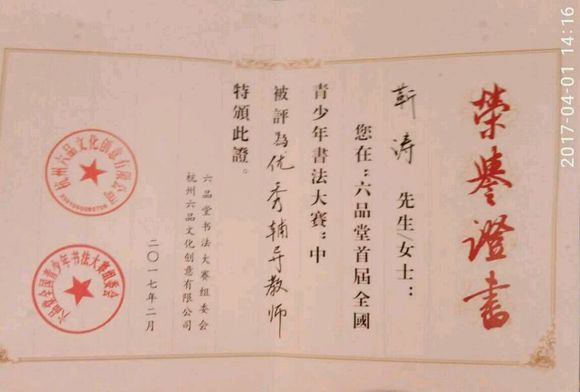 榮譽證書
靳涛 先生/女士：
您在：六品堂首屆全國
青少年書法大賽：中
被評為优秀辅导教师
特頒此證。
六品堂书法大赛组委会
杭州六品文化创意有限公司
二〇一七年二月
杭州六品文化创意有限公司
六品堂全国青少年书法大赛组委会
2017-04-01 14:16